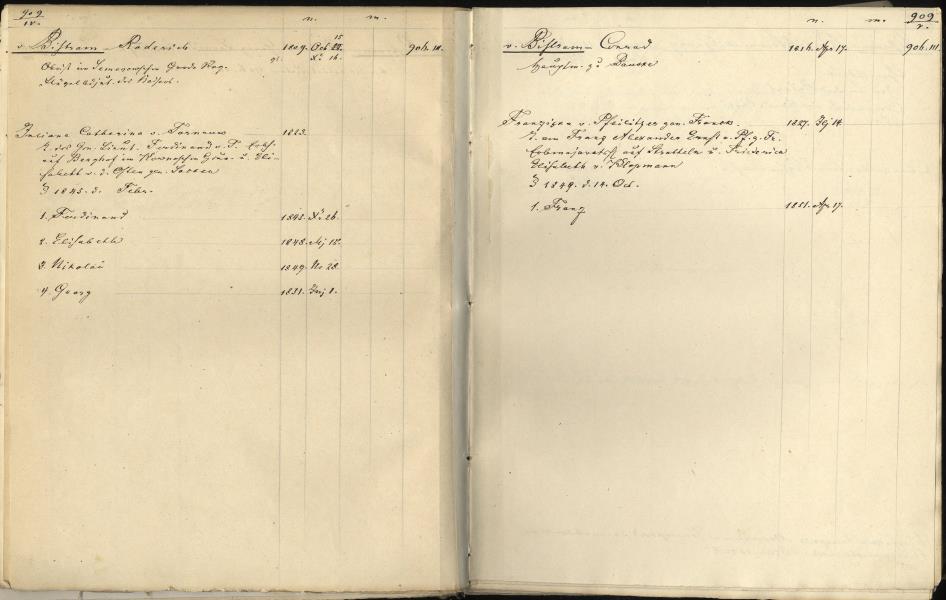 909
IV.
n. m.
v. Bistram Roderich 1809. Oct. 15 908. III.
Obrist im Semenowschen Garde Reg.
Flügeladjut. des Kaisers.
Juliane Catharina v. Tornauw 1823.
T. des Gn. Lieut. Ferdinand v. T. Erbh.
auf Berghof im Kownoschen Guv. u. Eli-
sabeth v. d. Osten gen. Sacken
1845. d. Febr.
1. Ferdinand 1845. 26.
2. Elisabeth 1848. Mj 12.
3. Nikolai 1849. No 28.
4. Georg 1851. Juj 1.
909
V.
n. m.
v. Bistram Conrad 1816. Apr 17. 908. III.
Hauptm. zu Bauske
Franzisca v. Pfeilitzer gen. Franck. 1827. 14.
T. von Franz Alexander Ernst v. Pf. g. Fr.
auf Strutteln u. Friederica
Elisabeth v. Klopmann
1849. d. 14. Oct.
1. Franz 1851. Apr 17.